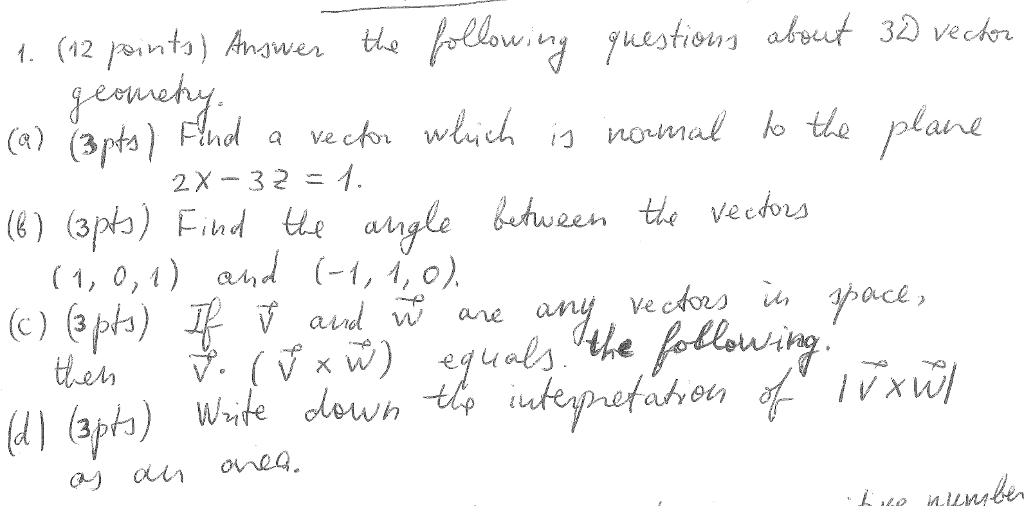 1. (12 points) Answer the following questions about 3D vector
geometry.
(a) (3pts) Find a vector which is normal to the plane
2x - 3z = 1.
(b) (3pts) Find the angle between the vectors
(1, 0, 1) and (-1, 1, 0).
(c) (3pts) If v⃗ and w⃗ are any vectors in space,
then v⃗ · (v⃗ × w⃗) equals the following.
(d) (3pts) Write down the interpretation of |v⃗ × w⃗|
as an area.
number